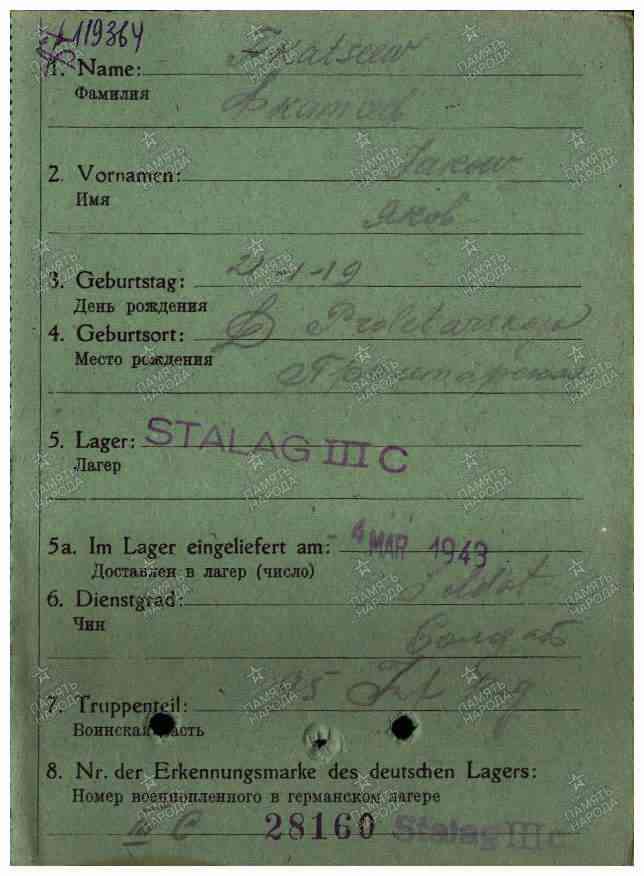 119364
1. Name: Fkatseew
Фамилия
2. Vornamen: Jakow
Имя Яков
3. Geburtstag: 21-1-19
День рождения
4. Geburtsort: Proletarskaja
Место рождения Пролетарская
5. Lager: STALAG III C
Лагер
5a. Im Lager eingeliefert am: 4 MAR 1943
Доставлен в лагер (число)
6. Dienstgrad: Soldat
Чин Солдат
7. Truppenteil:
Воинская часть
8. Nr. der Erkennungsmarke des deutschen Lagers:
Номер военнопленного в германском лагере
III C 28160 Stalag III C
ПАМЯТЬ НАРОДА